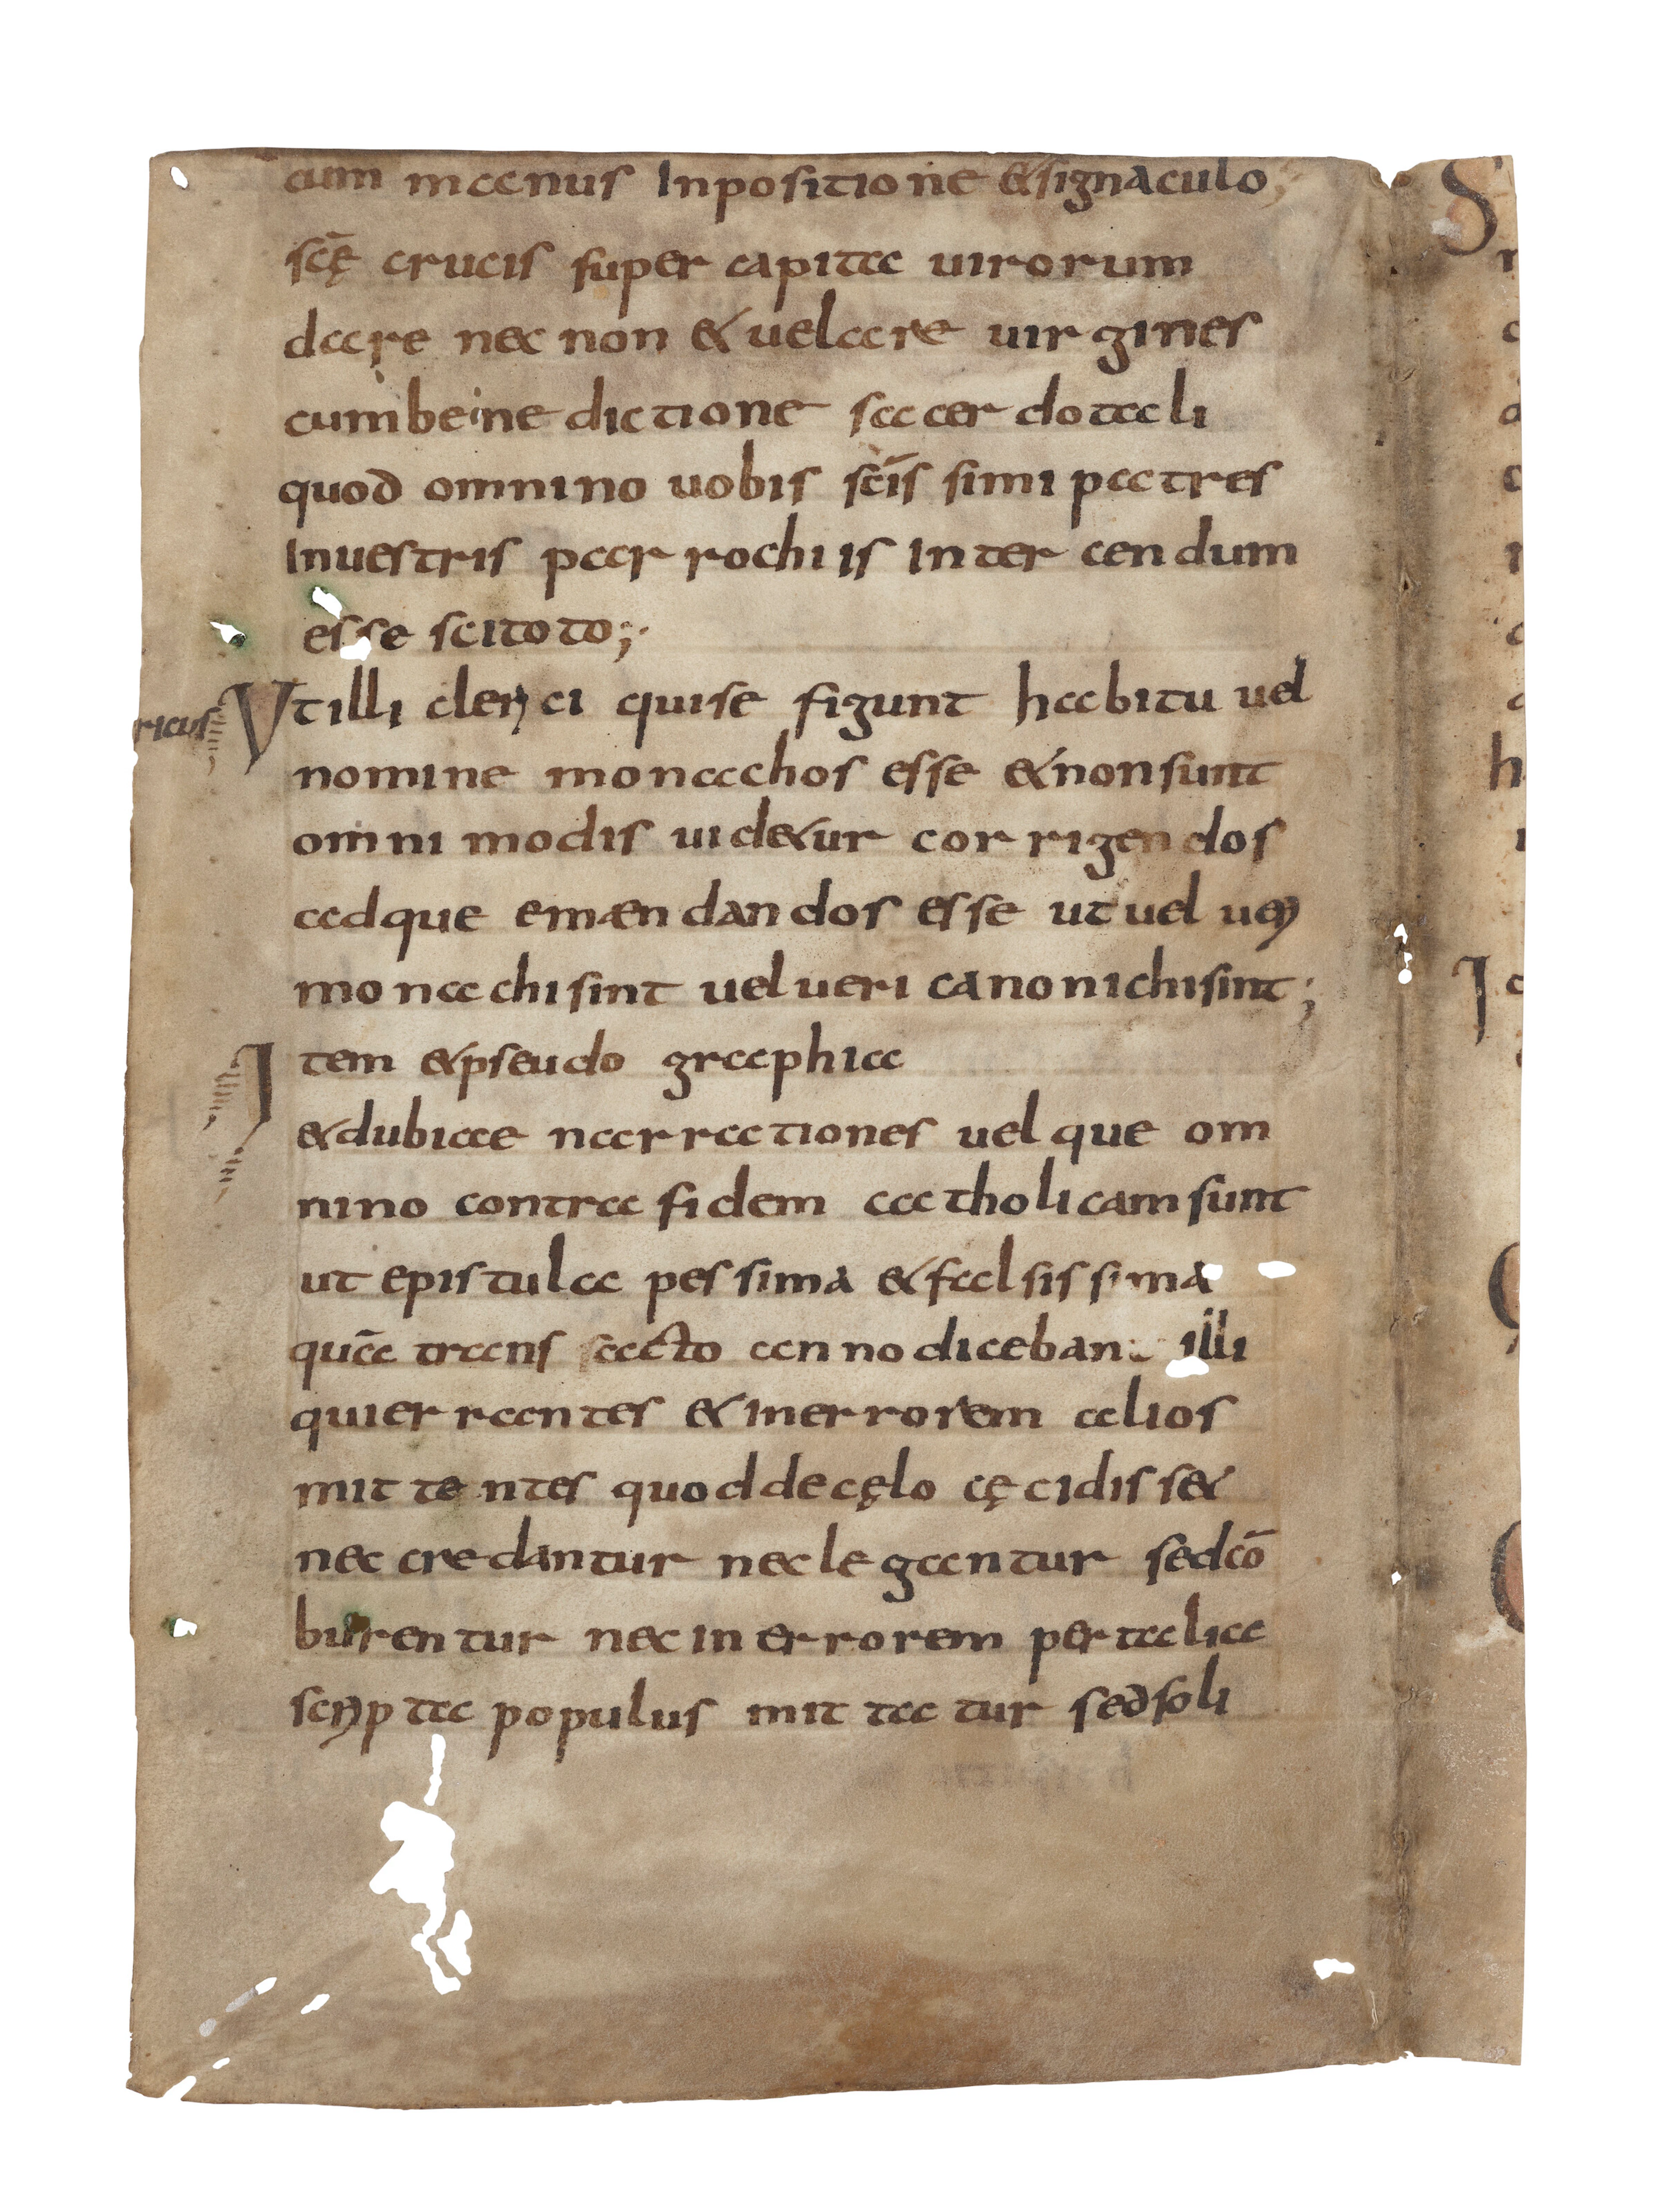 cum manus Inpositione & signaculo
scę̄ crucis super capita uirorum
dare nec non & uelare uirgines
cum benedictione sacerdotali
quod omnino uobis scīssimi patres
Inuestris parrochiis Interdendum
esse scitoto;
Vt illi clerici qui se figunt habitu uel
ricus
nomine monachos esse & non sunt
omnimodis uid&ur corrigendos
adque emændandos esse ut uel ueri
monachi sint uel ueri canonichi sint;
Item & pseudographia
& dubiae narrationes uel que om
nino contra fidem catholicam sunt
ut epistula pessima & falsissima
quā transacto anno diceban illi
qui errantes & in errorem alios
mittentes quod de cęlo cęcidiss&
nec credantur nec legantur sed cō
burentur nec in errorem per talia
scripta populus mittatur sed soli